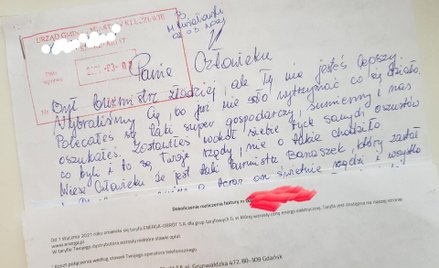 URZĄD GMINY
Panie Człowieku
Był burmistrz złodziej, ale Ty nie jesteś lepszy.
Wybraliśmy Cię, bo już nie szło wytrzymać co się działo.
Obiecałeś są taki super gospodarczy, sumienny i nas
oszukałeś. Zostawiłeś wokół siebie tych samych oszustów
co byli i to są Twoje rządy, nie o takie chodziło
Wiesz Człowieku że jest taki burmistrz Banaszek, który zastał
a teraz on świetnie rządzi i wszystko
Dokończenie rozliczenia faktury nr
Od 1 stycznia 2021 roku zmieniła się taryfa ENERGA-OBRÓT SA dla grup taryfowych G, w której wzrosły ceny energii elektrycznej. Taryfa jest dostępna na naszej stronie
www.energa.pl.
W Twojej
* Koszt połączenia według stawek Twojego operatora telefonicznego.
SA ul. Grunwaldzka 472, 80-309 Gdańsk